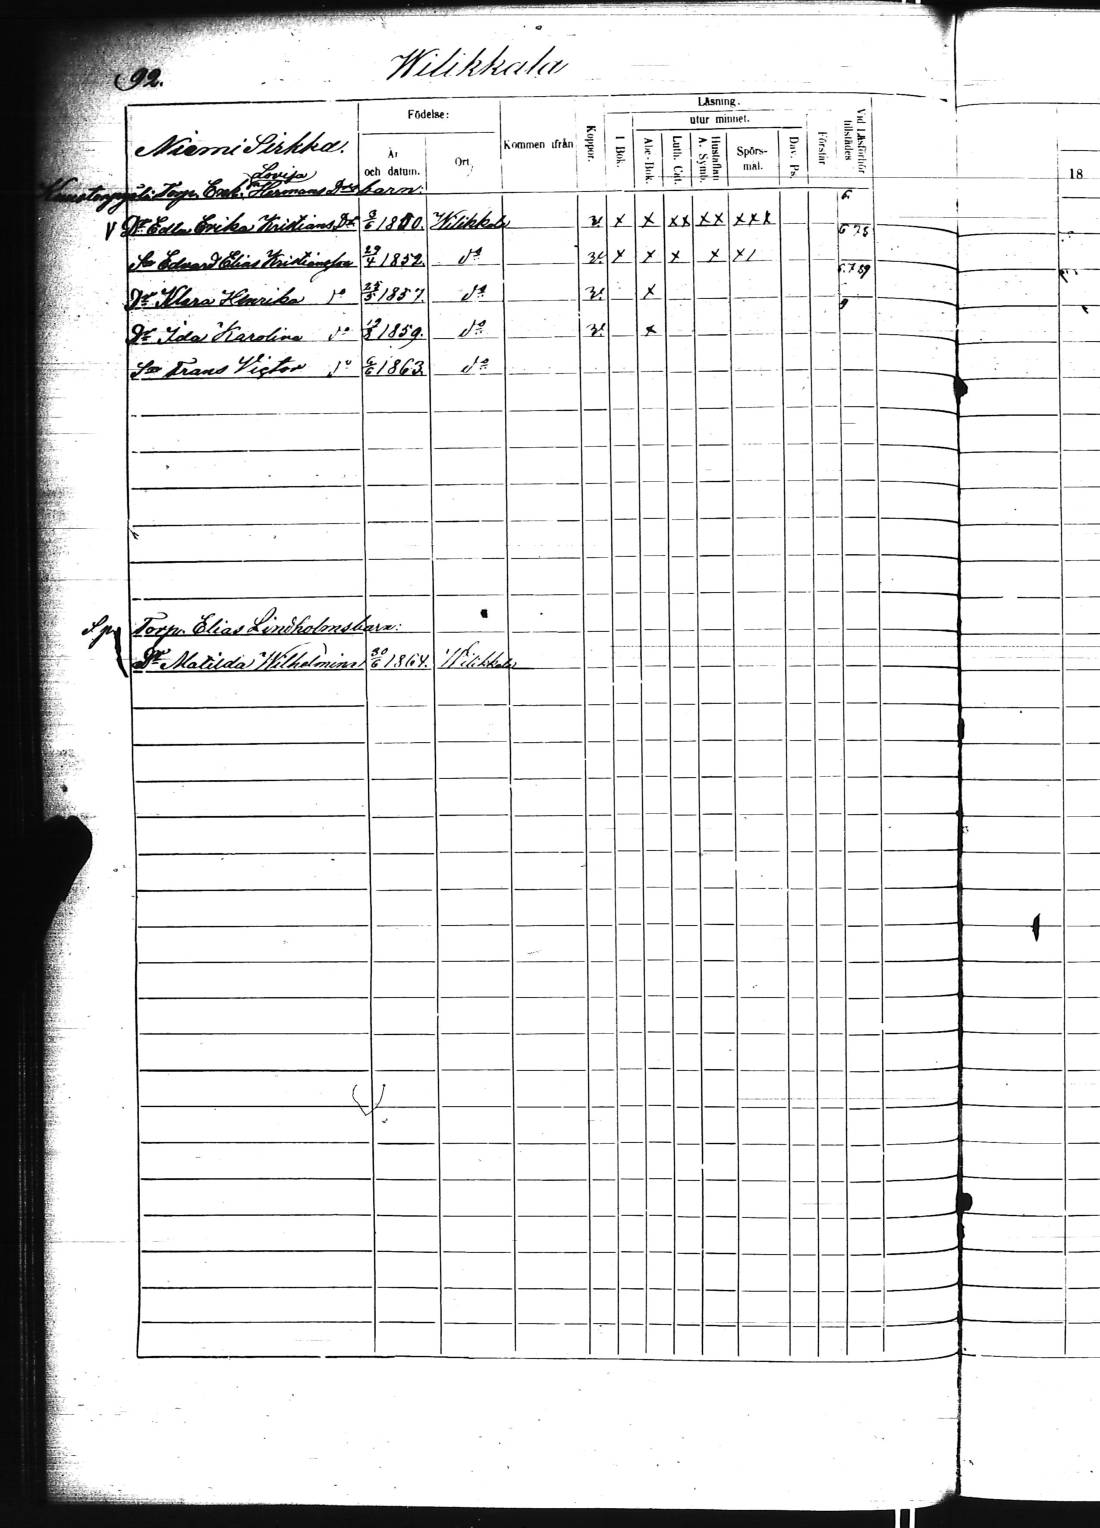 92.
Wilikkala
Niemi Sirkka.
Födelse:
År och datum.
Ort.
Kommen ifrån
Koppor.
Läsning.
I Bok.
utur minnet.
Abc-Bok.
Luth. Cat.
Hustaflan A. Symb.
Spörs-mål.
Dav. Ps.
Förstår
Vid Läsförhör tillstädes
18
Lovisa
Torp. Enk. Hermans Drs barn. 6
V Dr Edla Erika Kristians Dr 3/6 1850. Wilikkala v. x x xx xx xxx 6 7 8
Son Edvard Elias Kristiansson 29/4 1852. do v. x x x x x/ 6.7.89
Dr Klara Henrika do 25/5 1857. do v. x 9
Dr Ida Karolina do 19/8 1859. do v. x
Son Frans Victor do 6/6 1863. do
Torp. Elias Lindholms barn:
Dr Matilda Wilhelmina 30/6 1864. Wilikkala